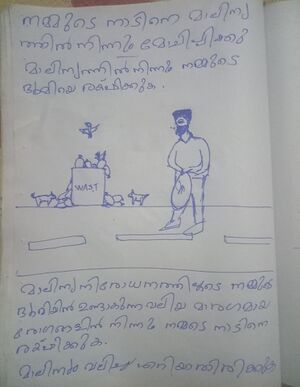 നമ്മുടെ നാടിനെ മാലിന്യ
ത്തിൽ നിന്നും മോചിപ്പിക്കു
മാലിന്യത്തിൽ നിന്നും നമ്മുടെ
ഭൂമിയെ രക്ഷിക്കുക.
WAST
മാലിന്യനിരോധനത്തിലൂടെ നമ്മുടെ
ഭൂമിയിൽ ഉണ്ടാകുന്ന വലിയ മാരഗമായ
രോഗങ്ങളിൽ നിന്നും നമ്മുടെ നാടിനെ
രക്ഷിക്കുക.
മാലിന്യം വലിച്ച് എറിയാതിരിക്കുക